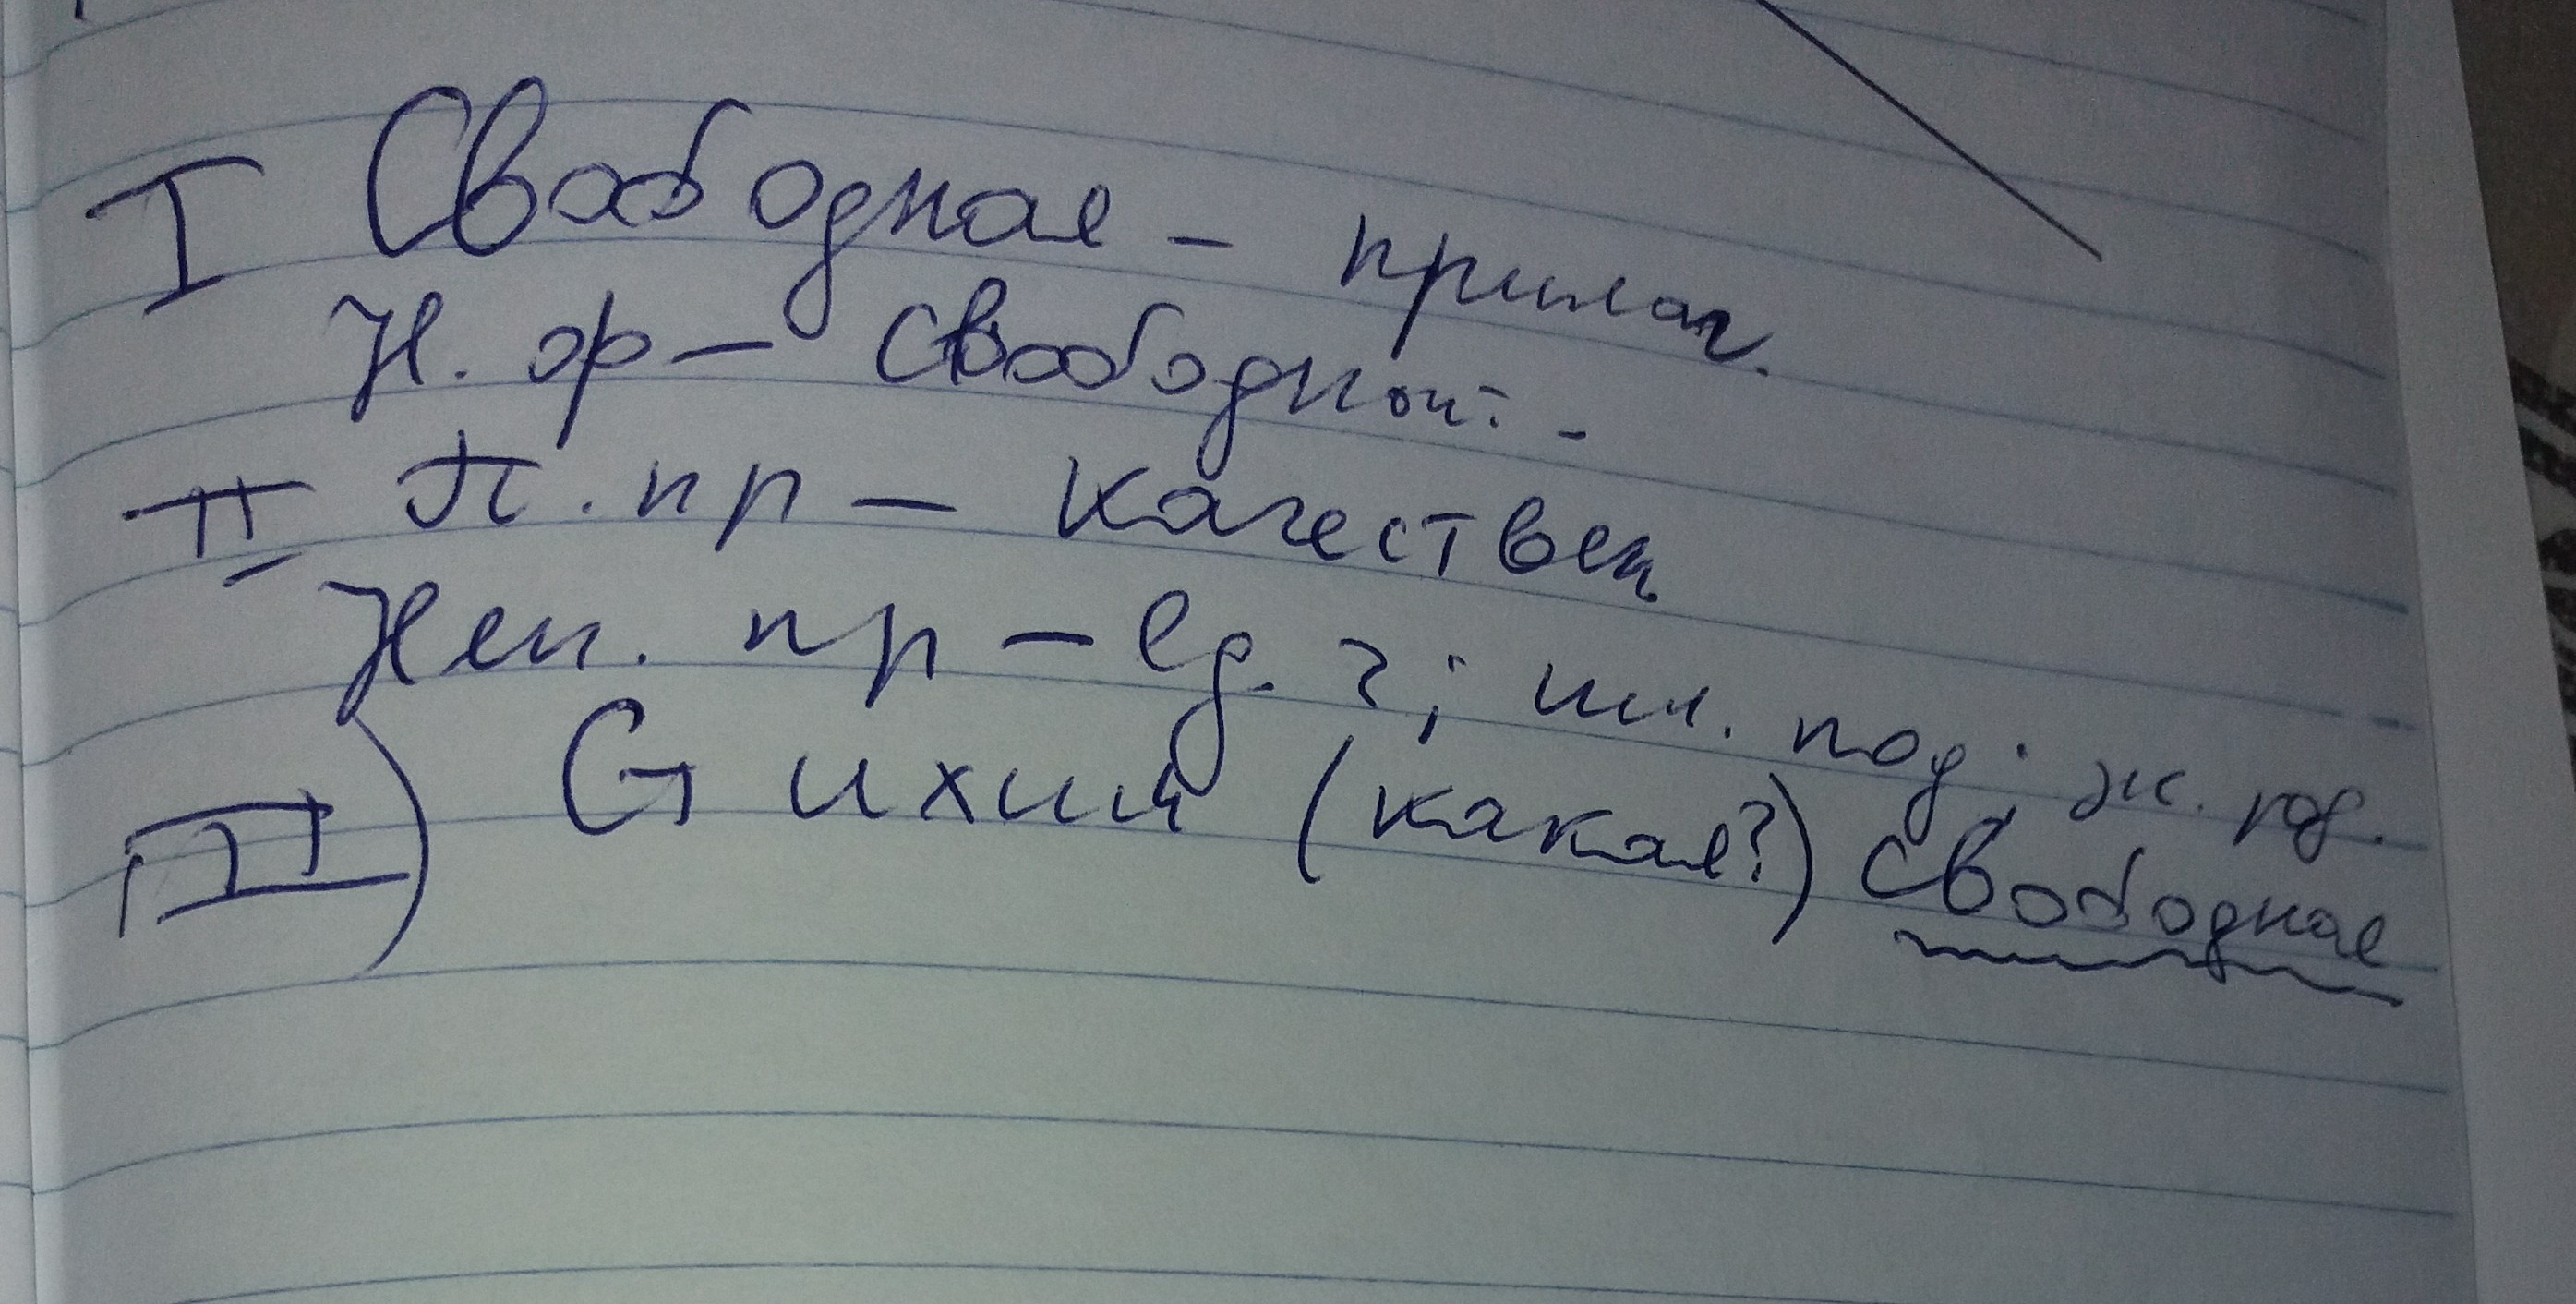 I Свободная - прилаг.
Н. ф - свободной -
II П. пр - качествен.
Неп. пр - ед. ч; им. под. ж. род.
III) Стихии (какая?) свободная